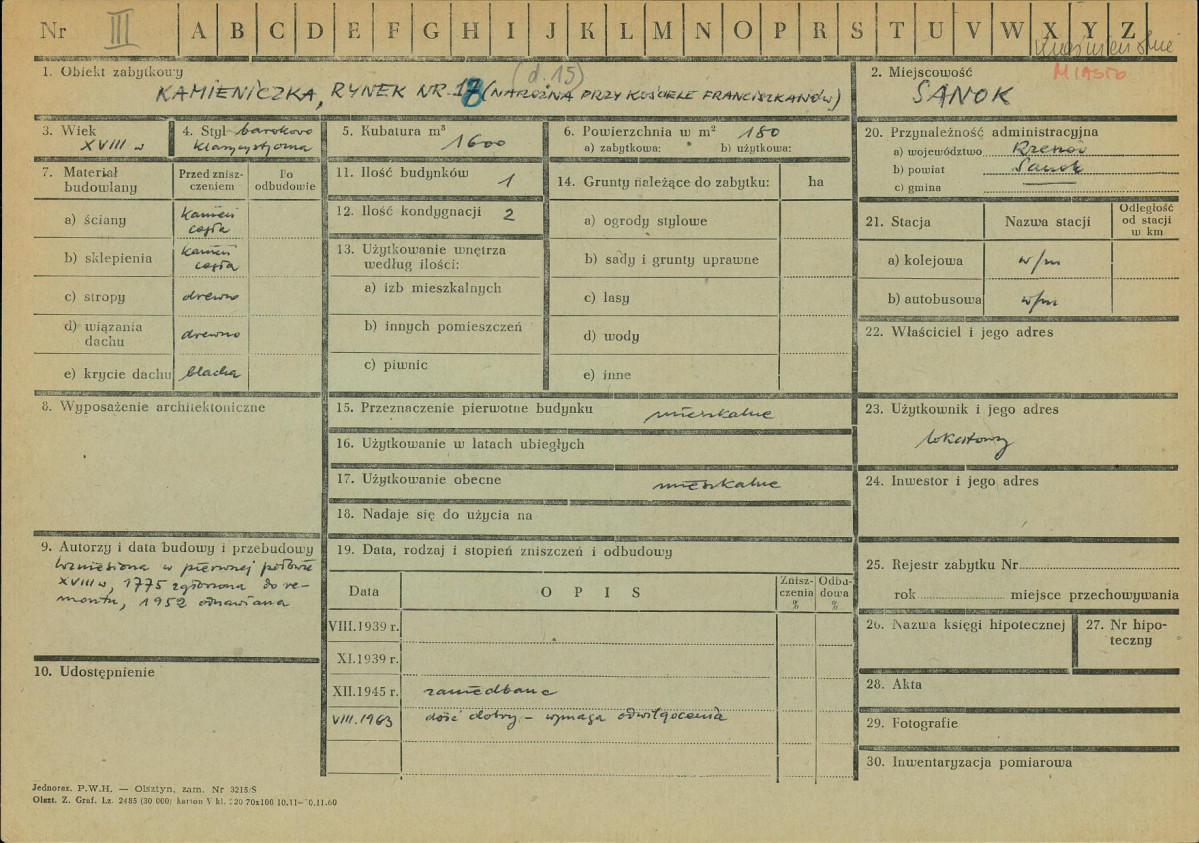 Nr III A B C D E F G H I J K L M N O P R S T U V W X Y Z
1. Obiekt zabytkowy (d. 15)
KAMIENICZKA, RYNEK NR (NAROŻNA PRZY KOŚCIELE FRANCISZKANÓW)
2. Miejscowość MIASTO
SANOK
3. Wiek
XVIII w
4. Styl barokowo
klasycystyczna
5. Kubatura m³
1600
6. Powierzchnia w m² 180
a) zabytkowa: b) użytkowa:
7. Materiał budowlany
Przed zniszczeniem
Po odbudowie
a) ściany kamień cegła
b) sklepienia kamień cegła
c) stropy drewno
d) wiązania dachu drewno
e) krycie dachu blacha
8. Wyposażenie architektoniczne
9. Autorzy i data budowy i przebudowy
wzniesiona w pierwszej połowie
XVIII w, 1775 zgłoszona do re-
montu, 1952 odnawiana
10. Udostępnienie
11. Ilość budynków 1
12. Ilość kondygnacji 2
13. Użytkowanie wnętrza
według ilości:
a) izb mieszkalnych
b) innych pomieszczeń
c) piwnic
14. Grunty należące do zabytku: ha
a) ogrody stylowe
b) sady i grunty uprawne
c) lasy
d) wody
e) inne
15. Przeznaczenie pierwotne budynku mieszkalne
16. Użytkowanie w latach ubiegłych
17. Użytkowanie obecne mieszkalne
18. Nadaje się do użycia na
19. Data, rodzaj i stopień zniszczeń i odbudowy
Data OPIS Zniszczenia % Odbudowa %
VIII.1939 r.
XI.1939 r.
XII.1945 r. zaniedbane
VIII.1963 dość dobry – wymaga odwilgocenia
20. Przynależność administracyjna
a) województwo Rzeszów
b) powiat Sanok
c) gmina
21. Stacja Nazwa stacji Odległość od stacji w km
a) kolejowa w/m
b) autobusowa w/m
22. Właściciel i jego adres
23. Użytkownik i jego adres
lokatorzy
24. Inwestor i jego adres
25. Rejestr zabytku Nr
rok miejsce przechowywania
26. Nazwa księgi hipotecznej
27. Nr hipo-
teczny
28. Akta
29. Fotografie
30. Inwentaryzacja pomiarowa
Jednoraz. P.W.H. — Olsztyn, zam. Nr 3215/S
Olszt. Z. Graf. Lz. 2485 (30 000) karton V kl. 220 70x100 10.11—